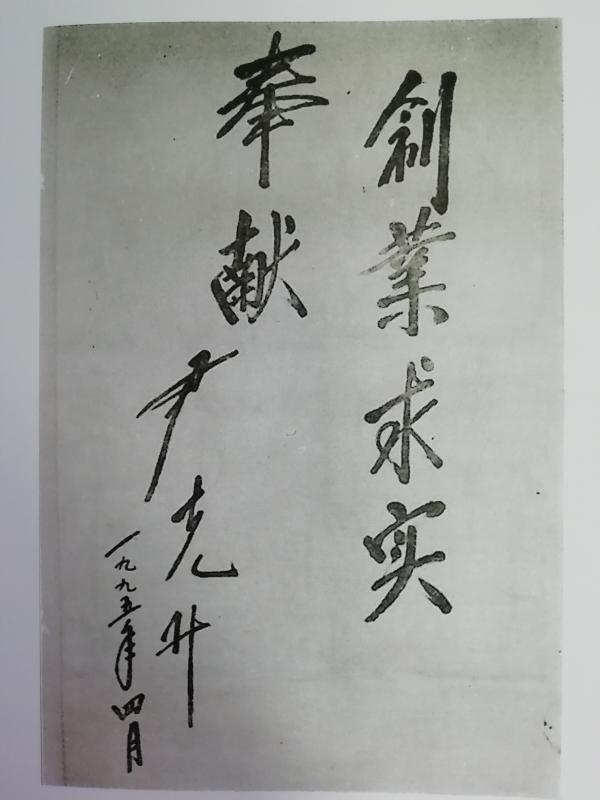 創業求实
奉献
尹克升
一九九五年四月